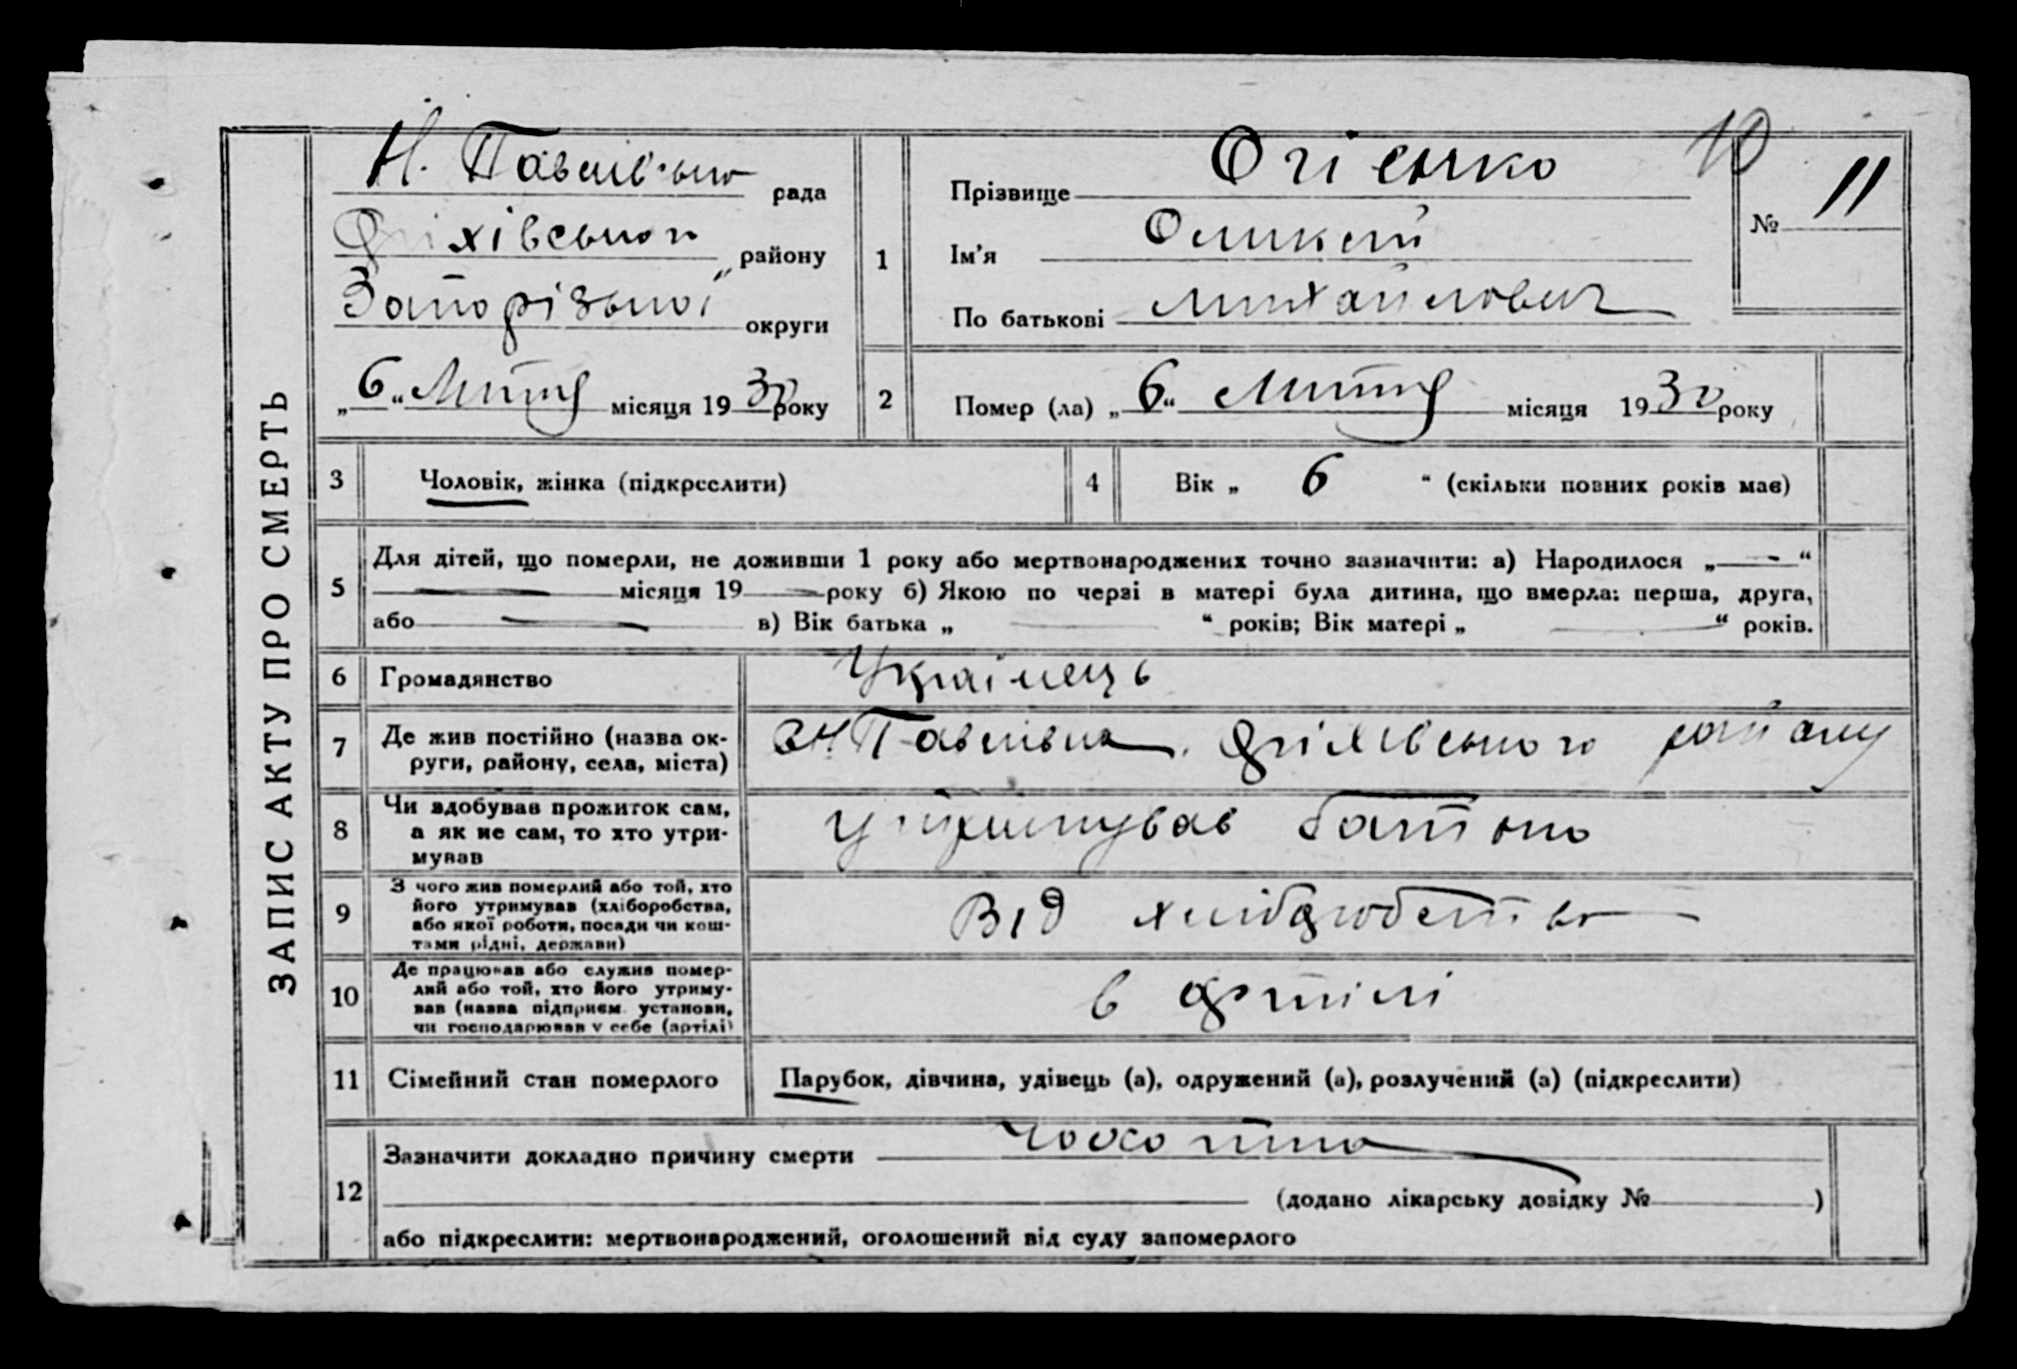 ЗАПИС АКТУ ПРО СМЕРТЬ
Н. Павлівська рада
Оріхівського району
Запорізької округи
„6“ Лютня місяця 1930 року
1
Прізвище Огієнко
Ім'я
По батькові Михайлович
10
№ 11
2
Помер (ла) „6“ Лютня місяця 1930 року
3
Чоловік, жінка (підкреслити)
4
Вік „ 6 “ (скільки повних років має)
5
Для дітей, що померли, не доживши 1 року або мертвонароджених точно зазначити: а) Народилося „—“
— місяця 19— року б) Якою по черзі в матері була дитина, що вмерла: перша, друга,
або — в) Вік батька „ “ років; Вік матері „ “ років.
6
Громадянство Українець
7
Де жив постійно (назва ок-
руги, району, села, міста)
Н Павлівка, Оріхівського району
8
Чи здобував прожиток сам,
а як не сам, то хто утри-
мував
утримував батько
9
З чого жив померлий або той, хто
його утримував (хліборобства,
або якої роботи, посади чи кош-
тами рідні, держави)
Від хліборобства
10
Де працював або служив помер-
лий або той, хто його утриму-
вав (назва підприєм. установи,
чи господарював у себе (артілі)
в артілі
11
Сімейний стан померлого
Парубок, дівчина, удівець (а), одружений (а), розлучений (а) (підкреслити)
12
Зазначити докладно причину смерти
(додано лікарську довідку № )
або підкреслити: мертвонароджений, оголошений від суду запомерлого